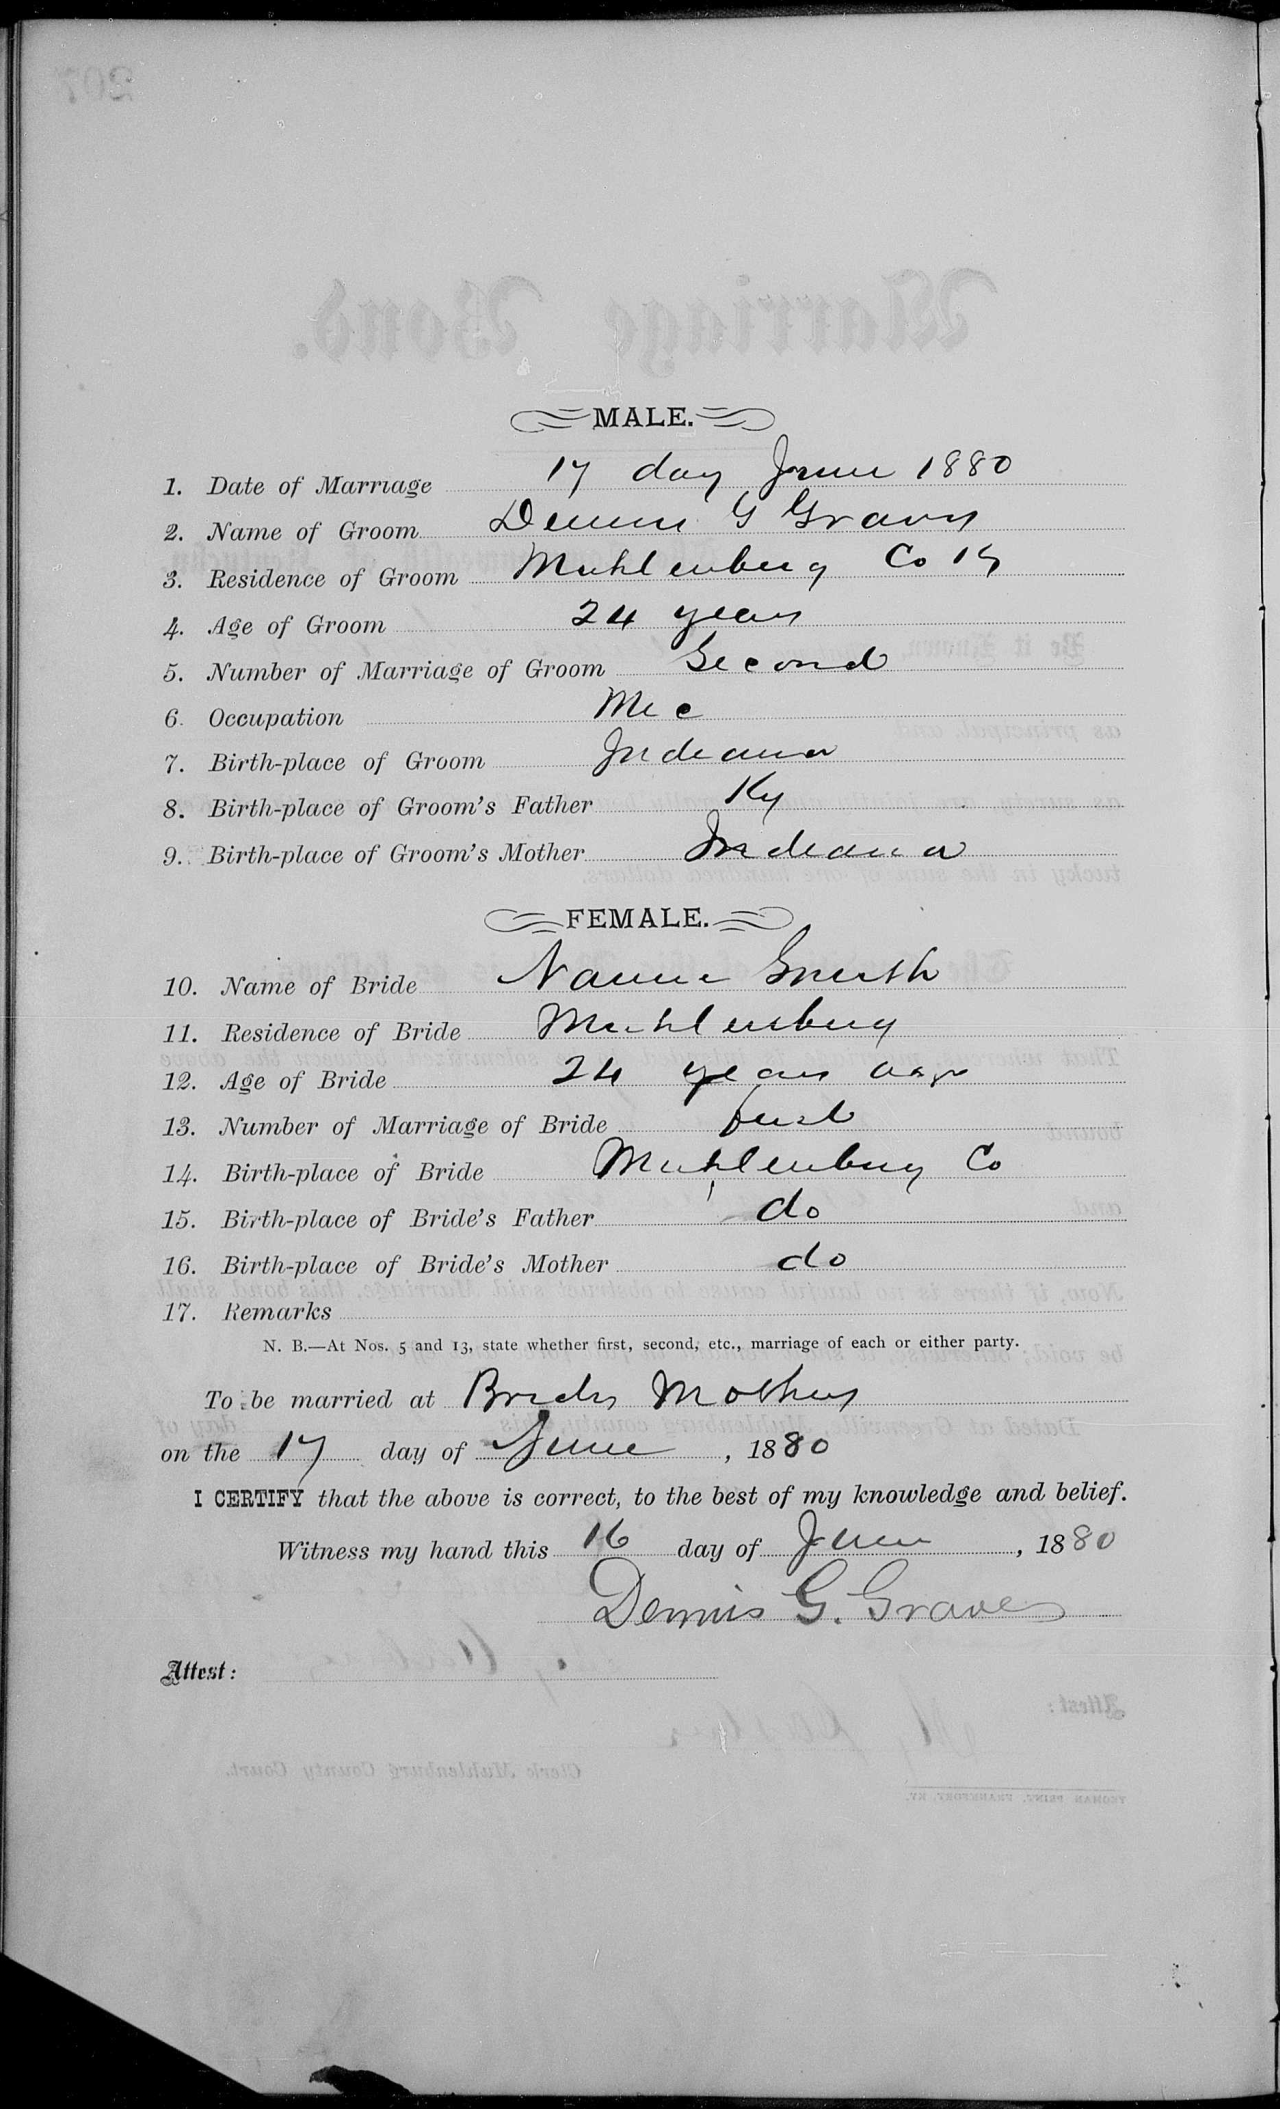 MALE.
1. Date of Marriage 17 day June 1880
2. Name of Groom Dennis G Graves
3. Residence of Groom Muhlenburg Co Ky
4. Age of Groom 24 years
5. Number of Marriage of Groom Second
6. Occupation Mec
7. Birth-place of Groom Indeana
8. Birth-place of Groom's Father Ky
9. Birth-place of Groom's Mother Indeana
FEMALE.
10. Name of Bride Nannie Smith
11. Residence of Bride Muhlenburg
12. Age of Bride 24 years
13. Number of Marriage of Bride first
14. Birth-place of Bride Muhlenburg Co
15. Birth-place of Bride's Father do
16. Birth-place of Bride's Mother do
17. Remarks
N. B.—At Nos. 5 and 13, state whether first, second, etc., marriage of each or either party.
To be married at Brides Mothers
on the 17 day of June, 1880
I CERTIFY that the above is correct, to the best of my knowledge and belief.
Witness my hand this 16 day of June, 1880
Dennis G. Graves
Attest: